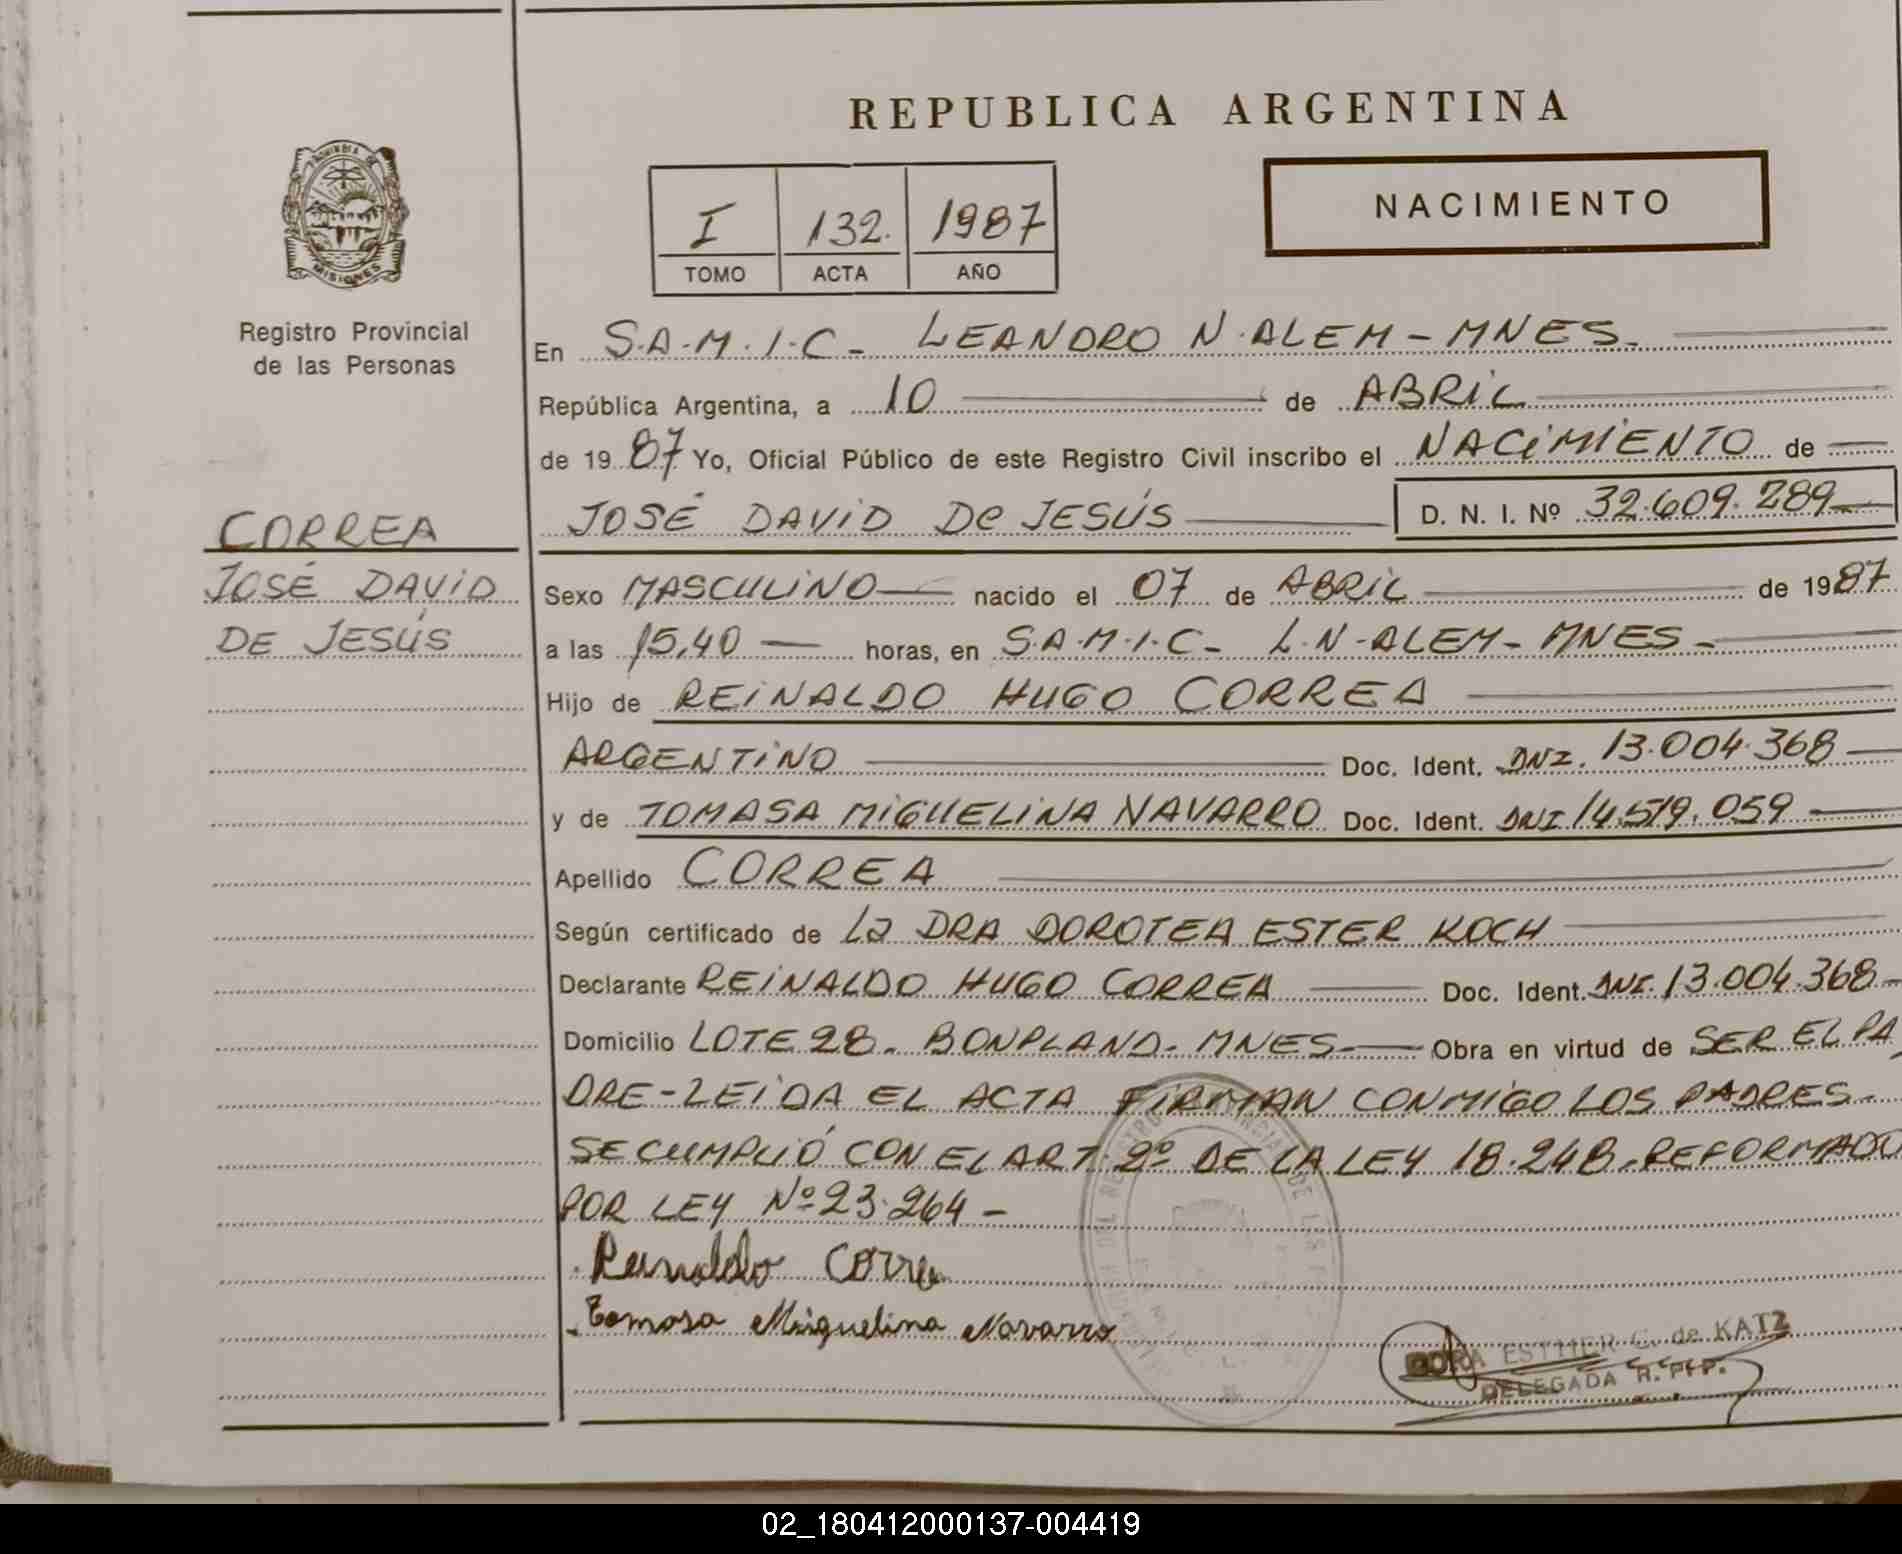 REPUBLICA ARGENTINA
PROVINCIA DE
MISIONES
Registro Provincial
de las Personas
I 132. 1987
TOMO ACTA AÑO
NACIMIENTO
En S.A.M.I.C- LEANDRO N.ALEM-MNES-
República Argentina, a 10 de ABRIL
de 1987 Yo, Oficial Público de este Registro Civil inscribo el NACIMIENTO de
JOSÉ DAVID De JESÚS D. N. I. Nº 32.609.289
CORREA
JOSÉ DAVID
DE JESÚS
Sexo MASCULINO nacido el 07 de ABRIL de 1987
a las 15,40 horas, en S.A.M.I.C- L.N-ALEM-MNES-
Hijo de REINALDO HUGO CORREA
ARGENTINO Doc. Ident. DNI. 13.004.368
y de TOMASA MIGUELINA NAVARRO Doc. Ident. DNI 14.519.059
Apellido CORREA
Según certificado de La DRA DOROTEA ESTER KOCH
Declarante REINALDO HUGO CORREA Doc. Ident. DNI. 13.004.368-
Domicilio LOTE 28. BONPLAND-MNES Obra en virtud de SER EL PA
DRE-LEIDA EL ACTA FIRMAN CONMIGO LOS PADRES-
SE CUMPLIÓ CON EL ART. 2º DE LA LEY 18.248, REFORMADO
POR LEY Nº 23.264-
Reinaldo Correa
Tomasa Miguelina Navarro
DORA ESTHER C. de KATZ
DELEGADA R. P. P.
02_180412000137-004419